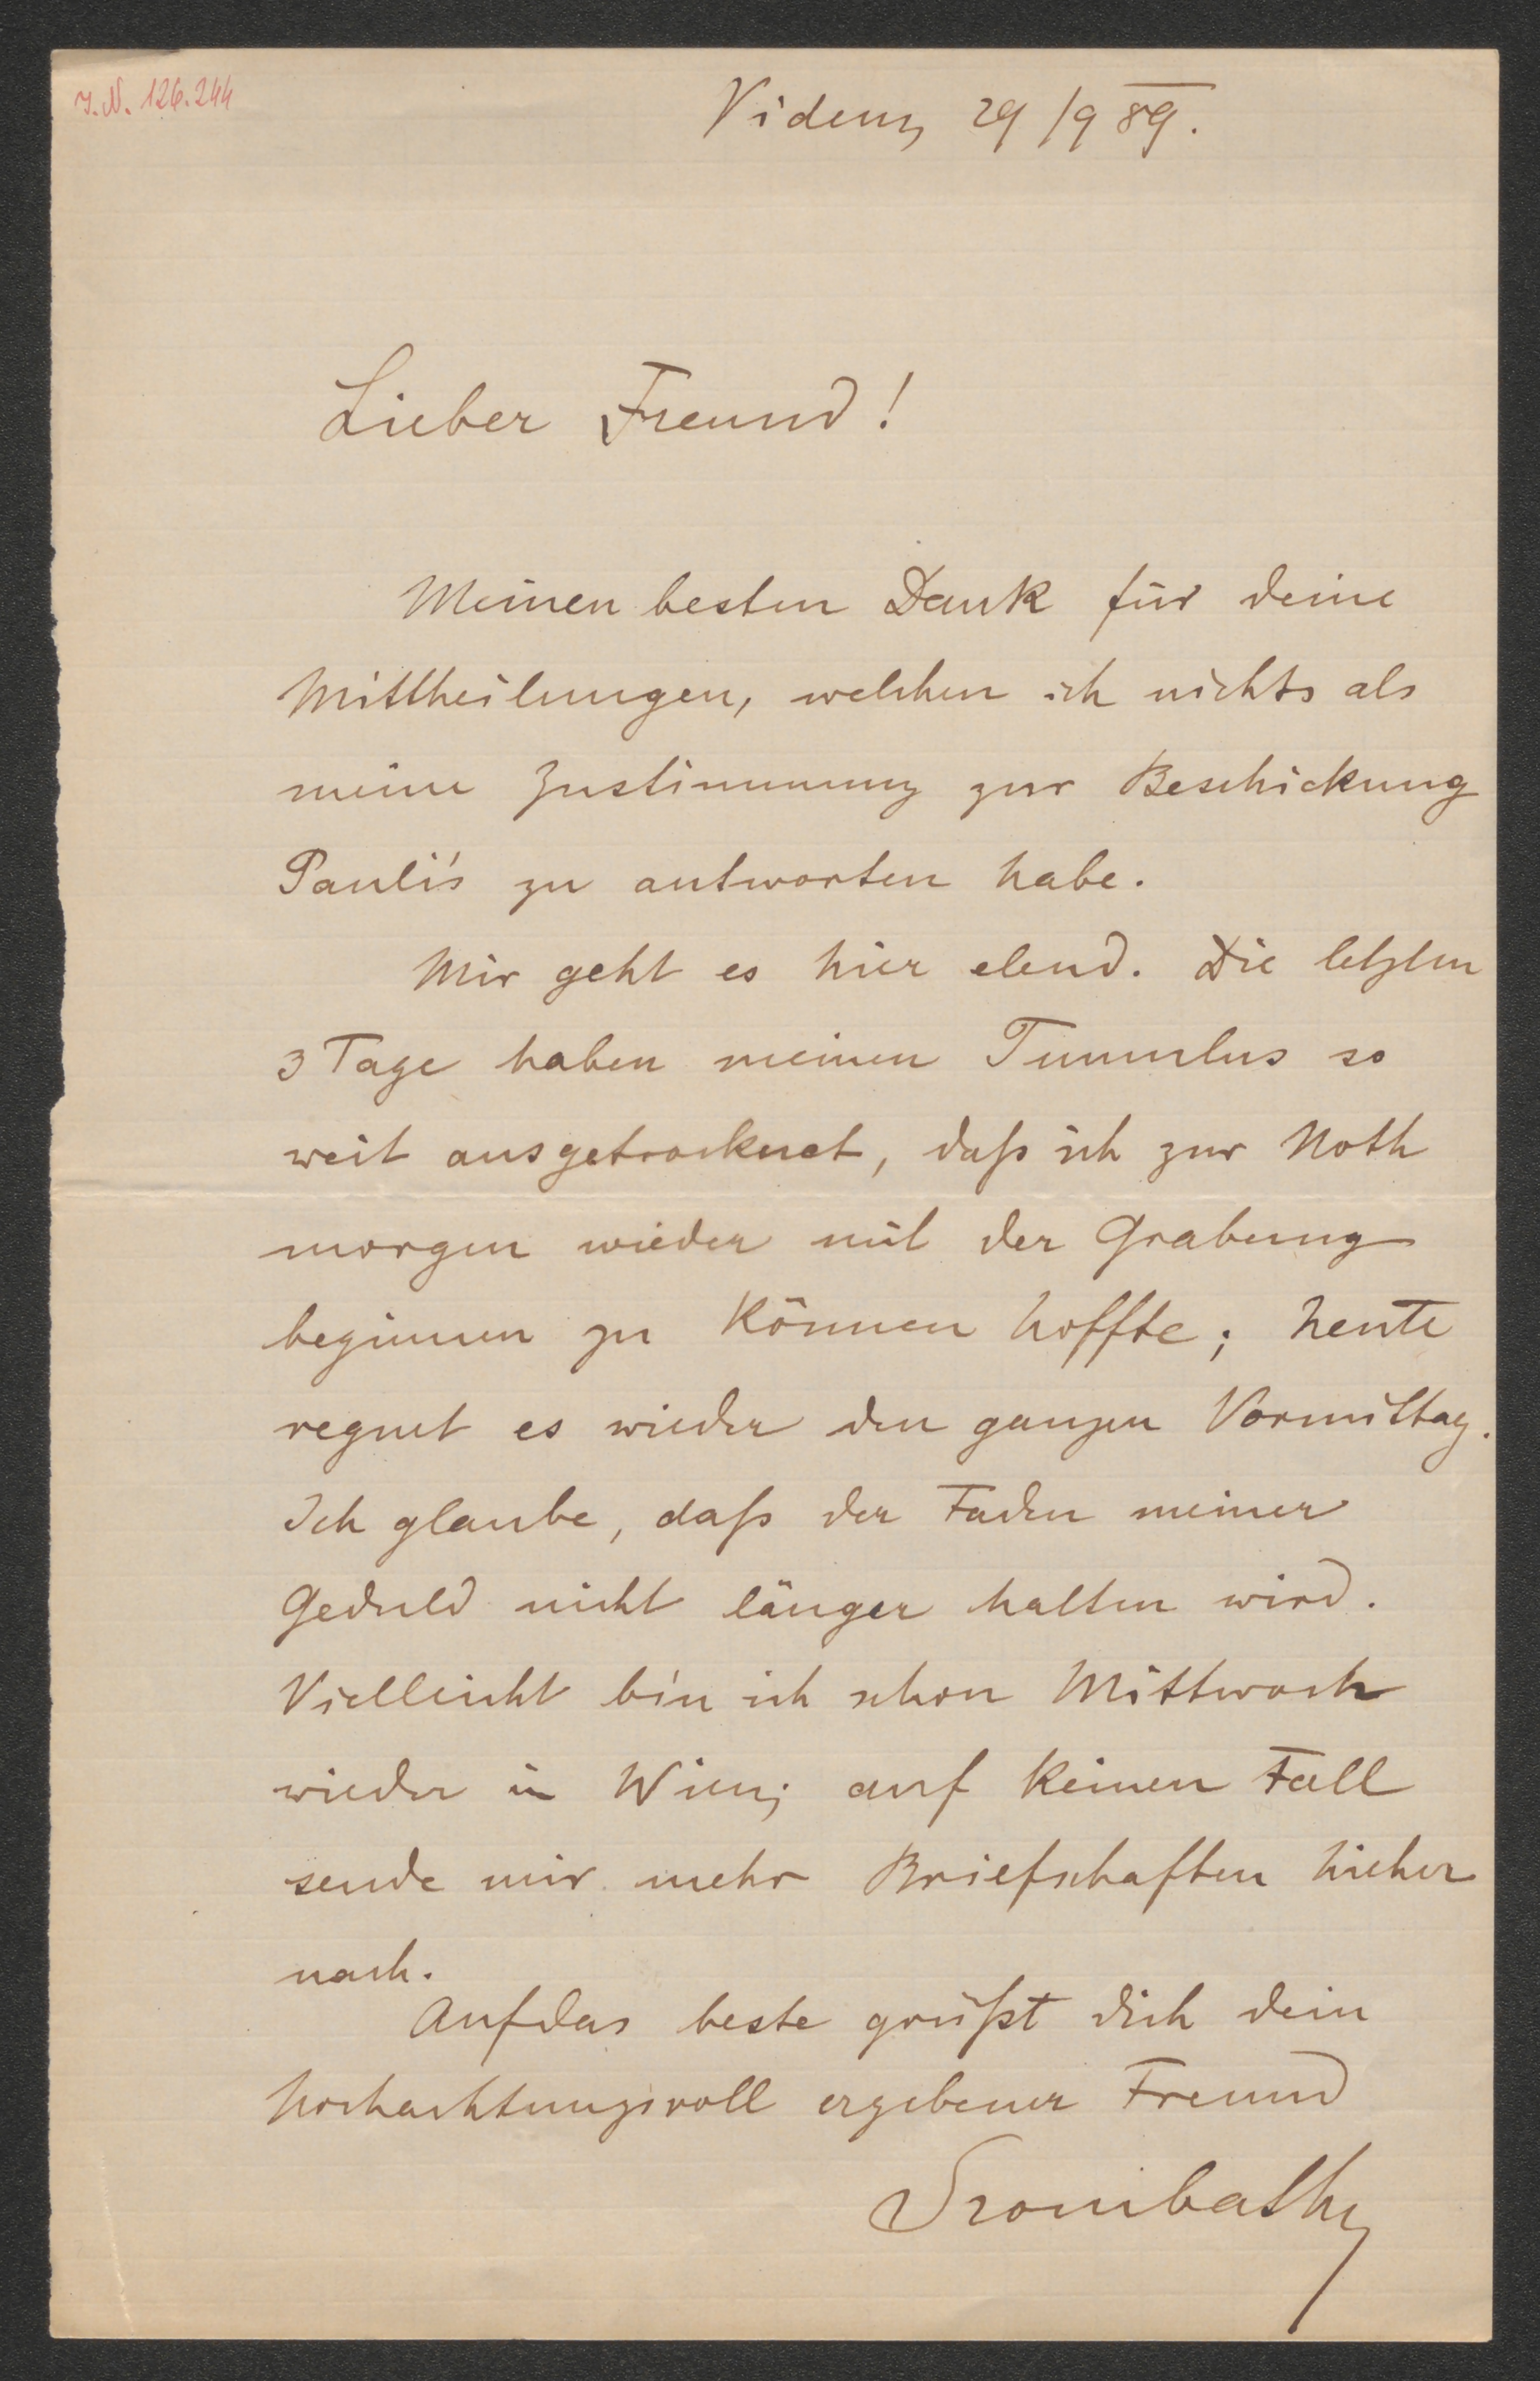 J.N. 126.244
Videm, 29/9 89.
Lieber Freund!
Meinen besten Dank für deine
Mittheilungen, welchen ich nichts als
meine Zustimmung zur Beschickung
Pauli's zu antworten habe.
Mir geht es hier elend. Die letzten
3 Tage haben meinen Tumulus so
weit ausgetrocknet, daß ich zur Noth
morgen wieder mit der Grabung
beginnen zu können hoffte; heute
regnet es wieder den ganzen Vormittag.
Ich glaube, daß der Faden meiner
Geduld nicht länger halten wird.
Vielleicht bin ich schon Mittwoch
wieder in Wien; auf keinen Fall
sende mir mehr Briefschaften hieher
nach.
Auf das beste grüßt dich dein
hochachtungsvoll ergebener Freund
Szombathy